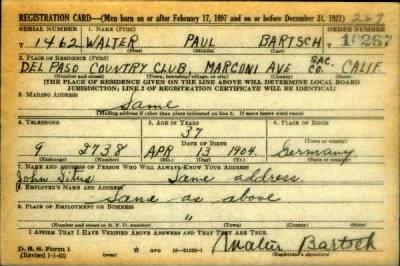 REGISTRATION CARD—(Men born on or after February 17, 1897 and on or before December 31, 1921) 267
SERIAL NUMBER 1. NAME (Print) ORDER NUMBER
T 1462 WALTER PAUL BARTSCH 10267
(First) (Middle) (Last)
2. PLACE OF RESIDENCE (Print)
DEL PASO COUNTRY CLUB, MARCONI AVE SAC. CO. CALIF.
(Number and street) (Town, township, village, or city) (County) (State)
[THE PLACE OF RESIDENCE GIVEN ON THE LINE ABOVE WILL DETERMINE LOCAL BOARD
JURISDICTION; LINE 2 OF REGISTRATION CERTIFICATE WILL BE IDENTICAL]
3. MAILING ADDRESS
Same
[Mailing address if other than place indicated on line 2. If same insert word same]
4. TELEPHONE 5. AGE IN YEARS 6. PLACE OF BIRTH
37
DATE OF BIRTH (Town or county)
9 3738 APR 13 1904 Germany
(Exchange) (Number) (Mo.) (Day) (Yr.) (State or country)
7. NAME AND ADDRESS OF PERSON WHO WILL ALWAYS KNOW YOUR ADDRESS
John Situs Same address.
8. EMPLOYER'S NAME AND ADDRESS
Same as above
9. PLACE OF EMPLOYMENT OR BUSINESS
(Number and street or R. F. D. number) (Town) (County) (State)
I AFFIRM THAT I HAVE VERIFIED ABOVE ANSWERS AND THAT THEY ARE TRUE.
D. S. S. Form 1
(Revised 1-1-42) GPO 16—21630-1 Walter Bartsch
(Registrant's signature)